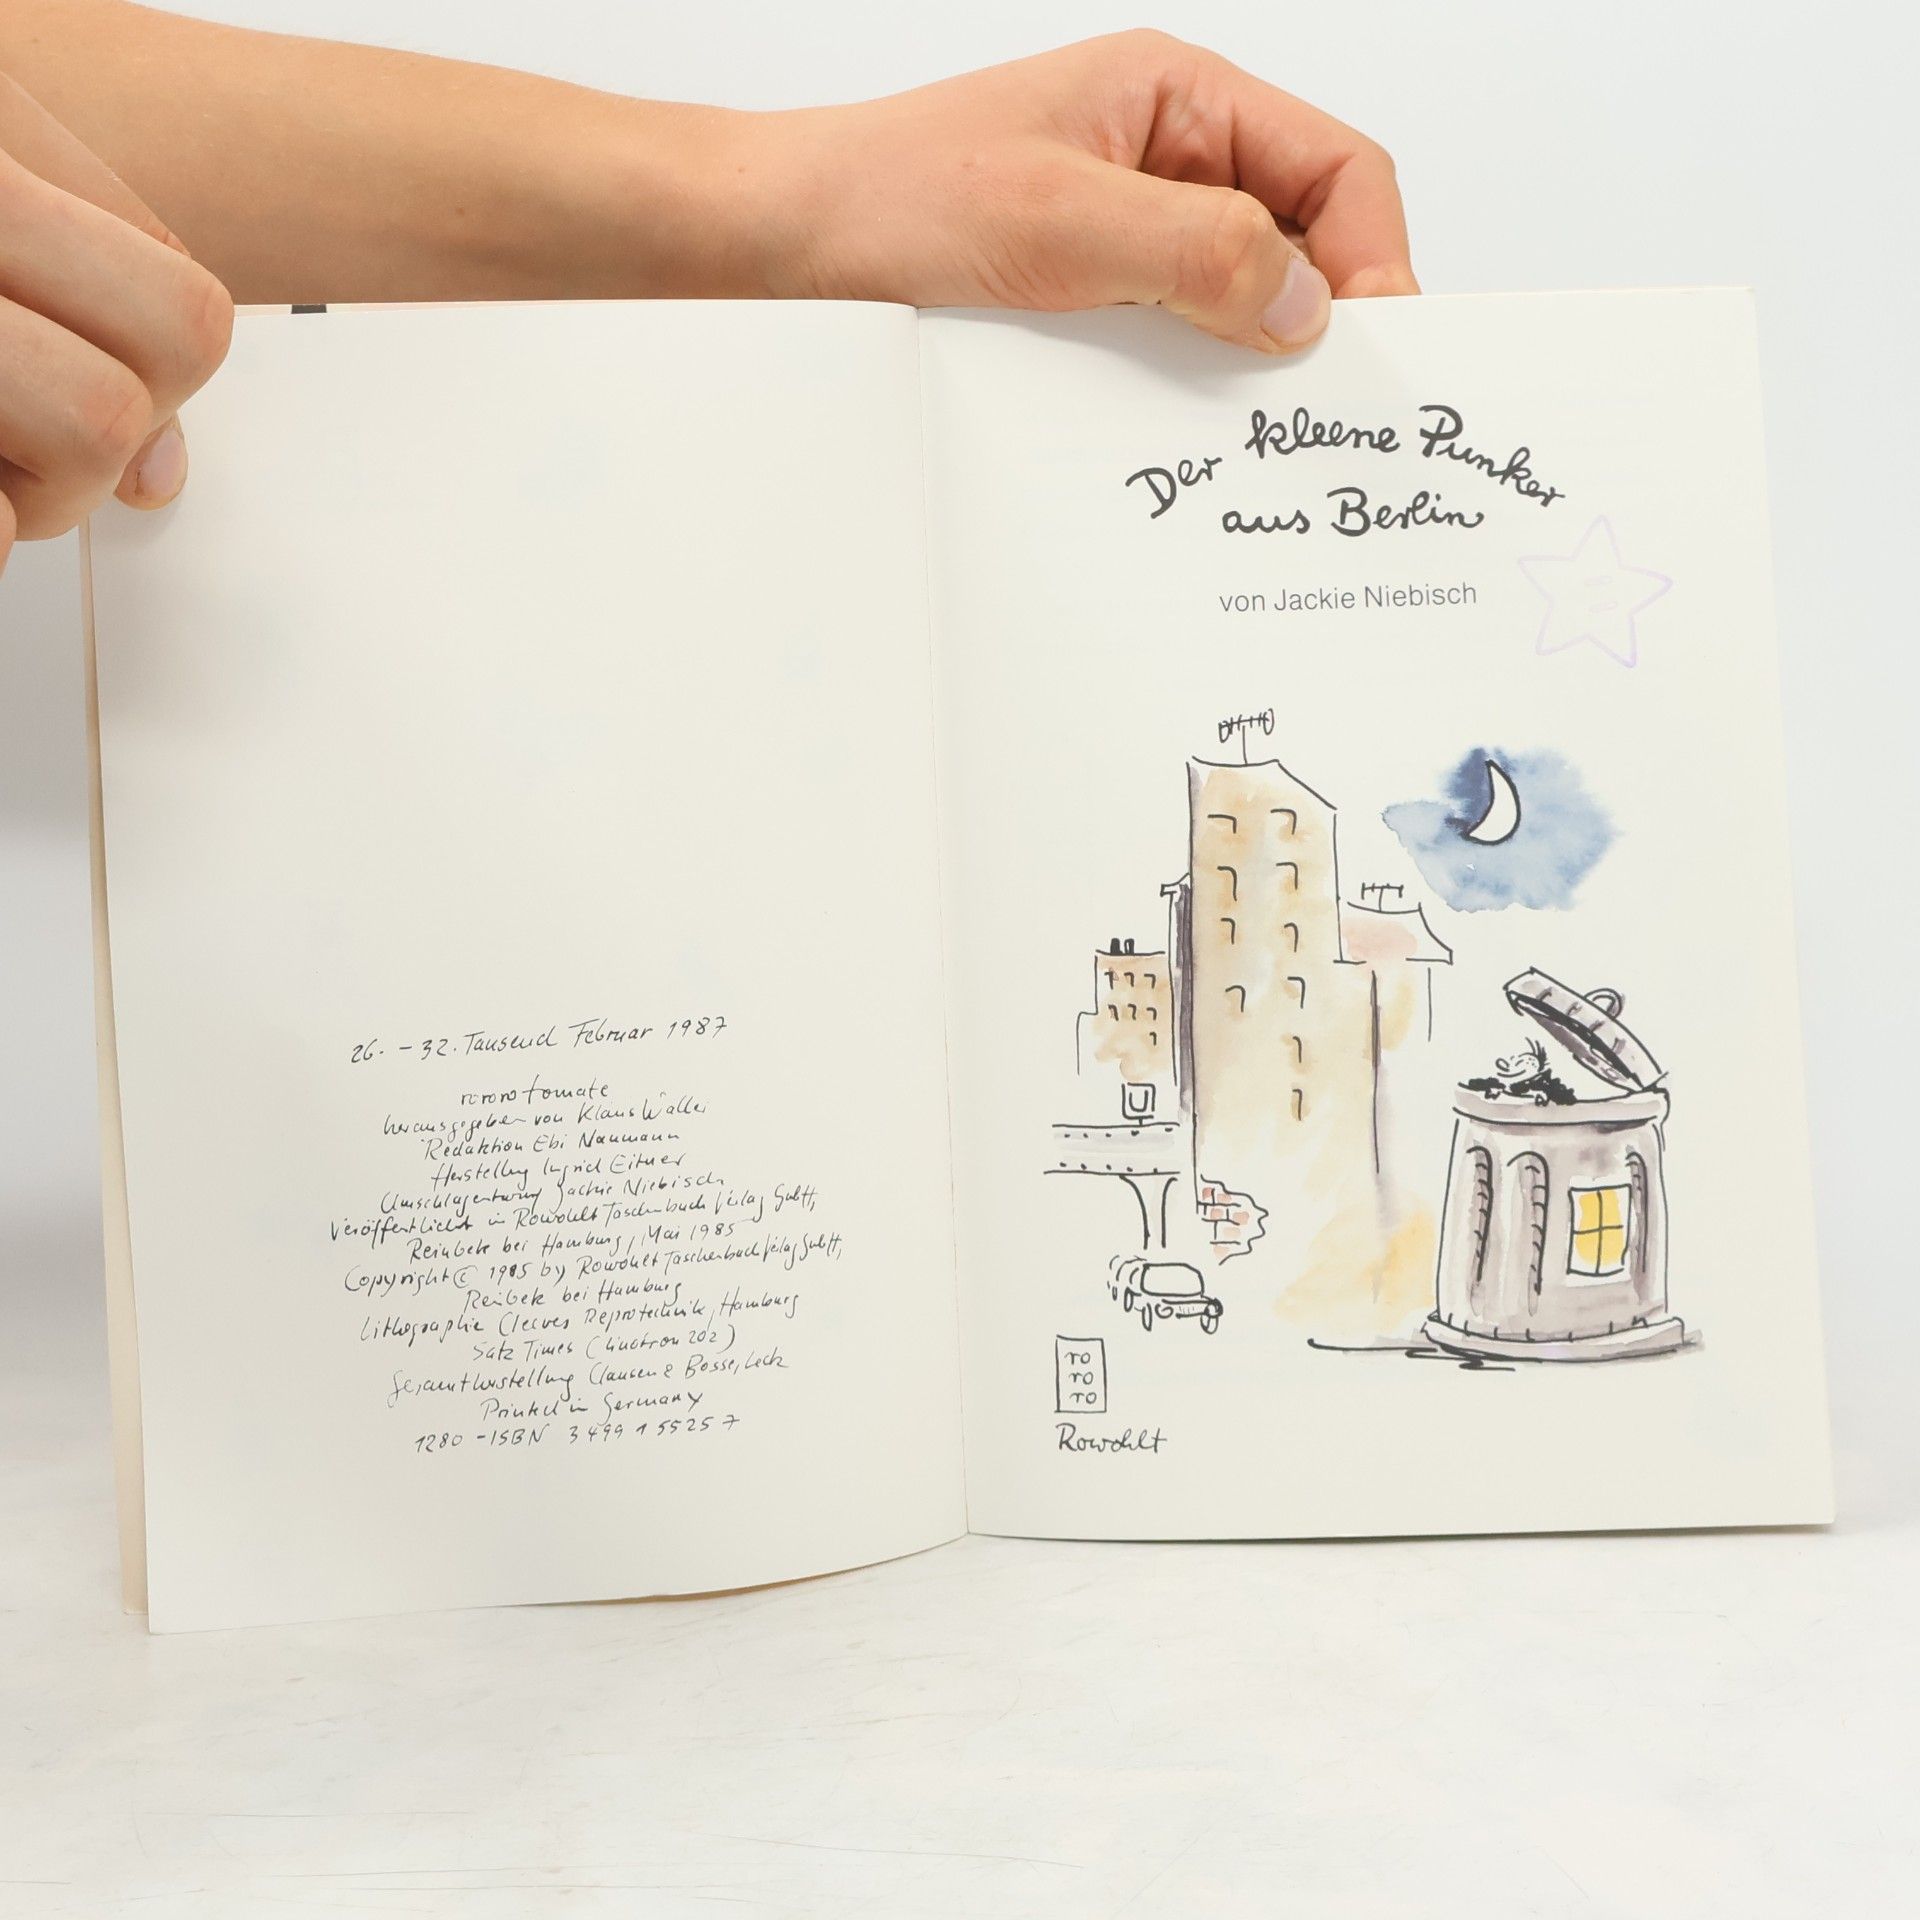 26. – 32. Tausend Februar 1987
rororo tomate
herausgegeben von Klaus Waller
Redaktion Ebi Naumann
Herstellung Ingrid Eitner
Umschlagentwurf Jackie Niebisch
Veröffentlicht im Rowohlt Taschenbuch Verlag GmbH,
Reinbek bei Hamburg, Mai 1985
Copyright © 1985 by Rowohlt Taschenbuch Verlag GmbH,
Reinbek bei Hamburg
Lithographie Cleeves Reprotechnik, Hamburg
Satz Times (Linotron 202)
Gesamtherstellung Clausen & Bosse, Leck
Printed in Germany
1280 - ISBN 3 499 15525 7
Der kleene Punker
aus Berlin
von Jackie Niebisch
U
ro
ro
ro
Rowohlt